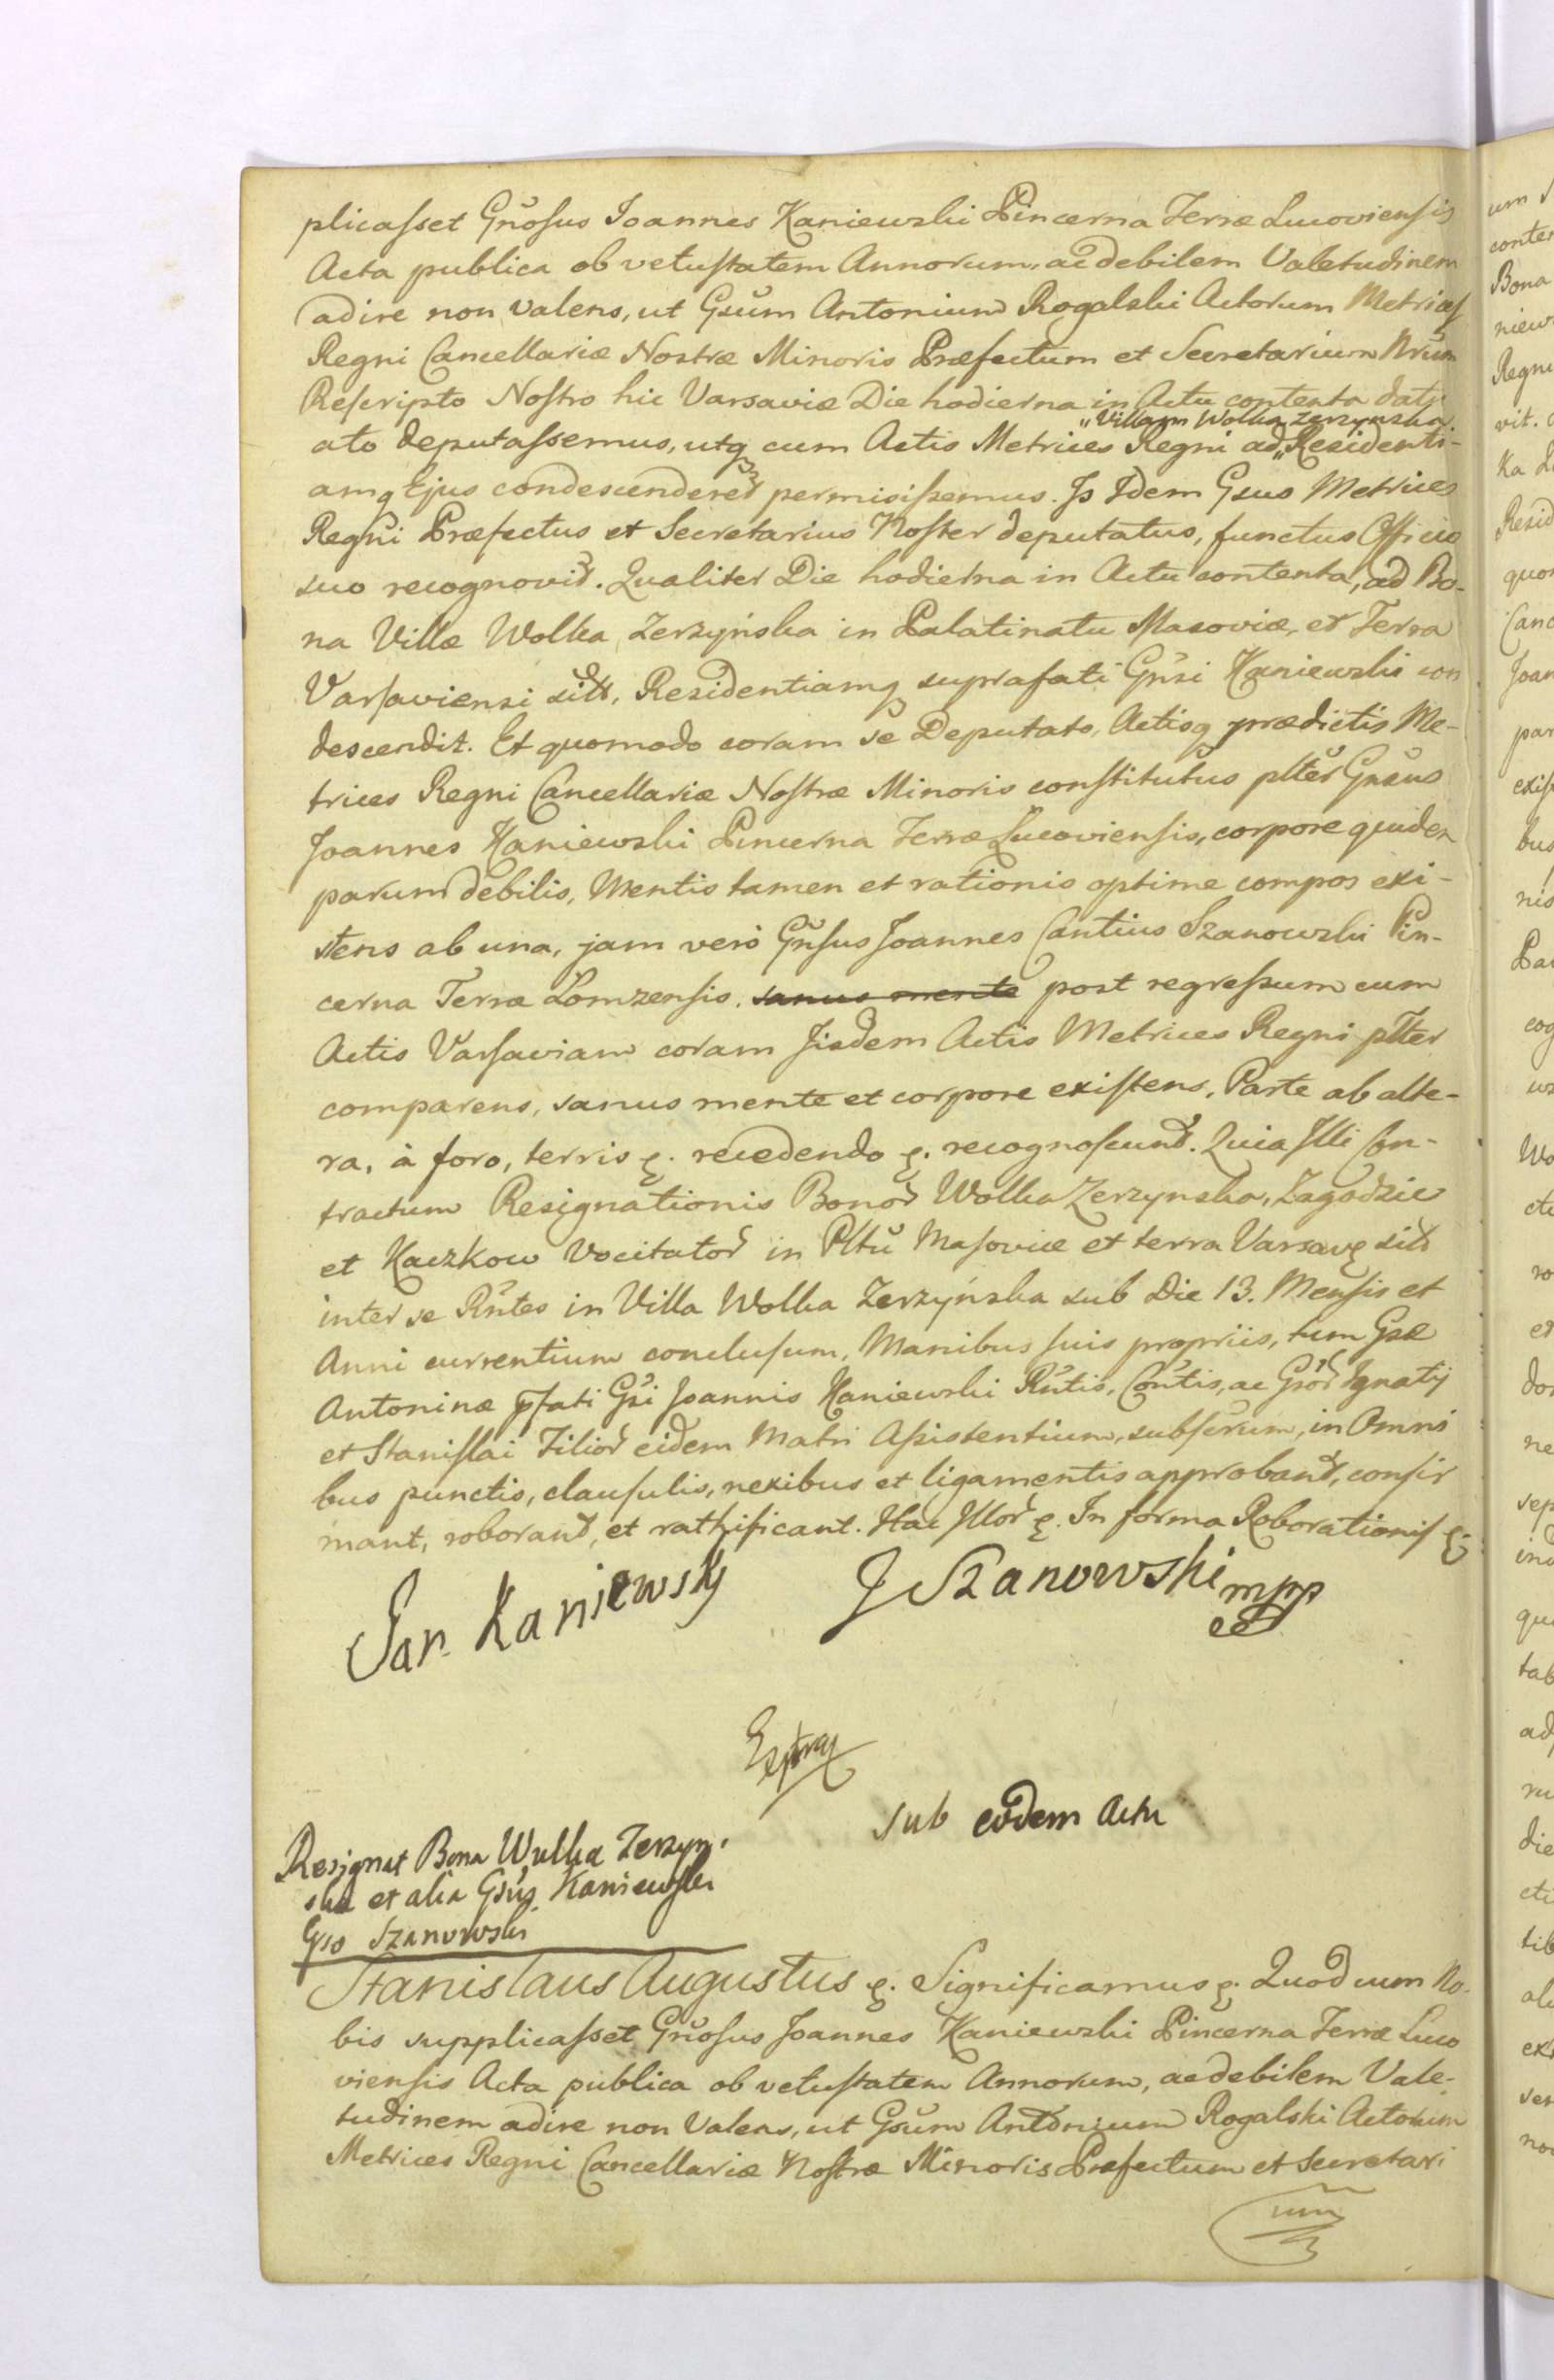 plicaſset Gnŏsus Joannes Kaniewski Pincerna Terræ Lucoviensis
Acta publica ob vetuſtatem Annorum, ac debilem Valetudinem
adire non valens, ut Gsŭm Antonium Rogalski Actorum Metrices
Regni Cancellariæ Noſtræ Minoris Præfectum et Secretarium Nrŭm
Reſcripto Noſtro hic Varsaviæ Die hodierna in Actu contenta dato
„Villam Wolka Zerzynska
ato deputaſsemus, utq cum Actis Metrices Regni ad„ Residenti-
amq Ejus condescenderet permisiſsemus. Is Idem Gsus Metrices
Regni Præfectus et Secretarius Noſter deputatus, functus Officio
suo recognovit. Qualiter Die hodierna in Actu contenta, ad Bo-
na Villæ Wolka Zerzyńska in Palatinatu Masoviæ, et Terra
Varſaviensi sit, Residentiamq suprafati Gn̆si Kaniewski con
descendit. Et quomodo coram se Deputato, Actisq prædictis Me-
trices Regni Cancellariæ Noſtræ Minoris conſtitutus pltĕr Gnsŭs
Joannes Kaniewski Pincerna Terræ Lucovienſis, corpore quidem
parum debilis, Mentis tamen et rationis optime compos exi-
stens ab una, jam verò Gn̆ſus Joannes Cantius Szanowski Pin-
cerna Terræ Łomzenſis, sanus mente post regreſsum cum
Actis Varſaviam coram Iisdem Actis Metrices Regni plter
comparens, sanus mente et corpore exiſtens, Parte ab alte-
ra, à foro, terris ę. recedendo ę. recognoſcunt. Quia Illi Con-
tractum Resignationis Bonor Wolka Zerzynska, Zagodzie
et Kaczkow Vocitator in Pltŭ Maſoviæ et terra Varsavę sit
inter se Rn̆tes in Villa Wolka Zerzyńska sub Die 13. Menſis et
Anni currentium concluſum, Manibus ſuis propriis, tum Gsæ
Antoninæ pfati Gsi Joannis Kaniewski Rn̆tis, Con̆tis, ac Gsor Ignatij
et Staniſlai Filior eidem Matri Aſsistentium, subſcrum, in Omni
bus punctis, clauſulis, nexibus et ligamentis approbant, confir
mant, roborant, et rathificant. Hac Illor ę. In forma Roborationiſ ę.
Jan Kaniewsky
J Szanowski mpp
Sub eodem Actu
Resignat Bona Wulka Zerzyn.
ska et alia Gsŭs Kaniewski
Gso Szanowski
Stanislaus Augustus ę. Significamus ę. Quod cum No-
bis supplicaſset Gnŏſus Joannes Kaniewski Pincerna Terræ Luco
vienſis Acta publica ob vetuſtatem Annorum, ac debilem Vale-
tudinem adire non Valens, ut Gsŭm Antonium Rogalski Actorum
Metrices Regni Cancellariæ Noſtræ Minoris Præfectum et Secretari
um